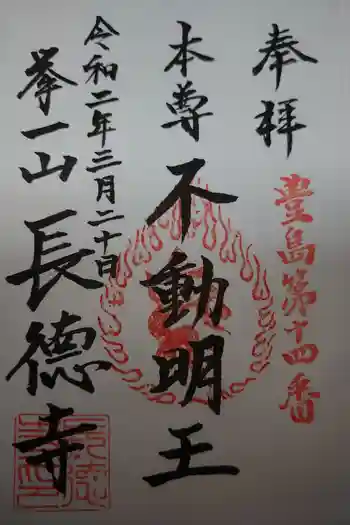 奉拝
豊島第十四番
本尊
不動明王
令和二年三月二十日
挙一山
長德寺